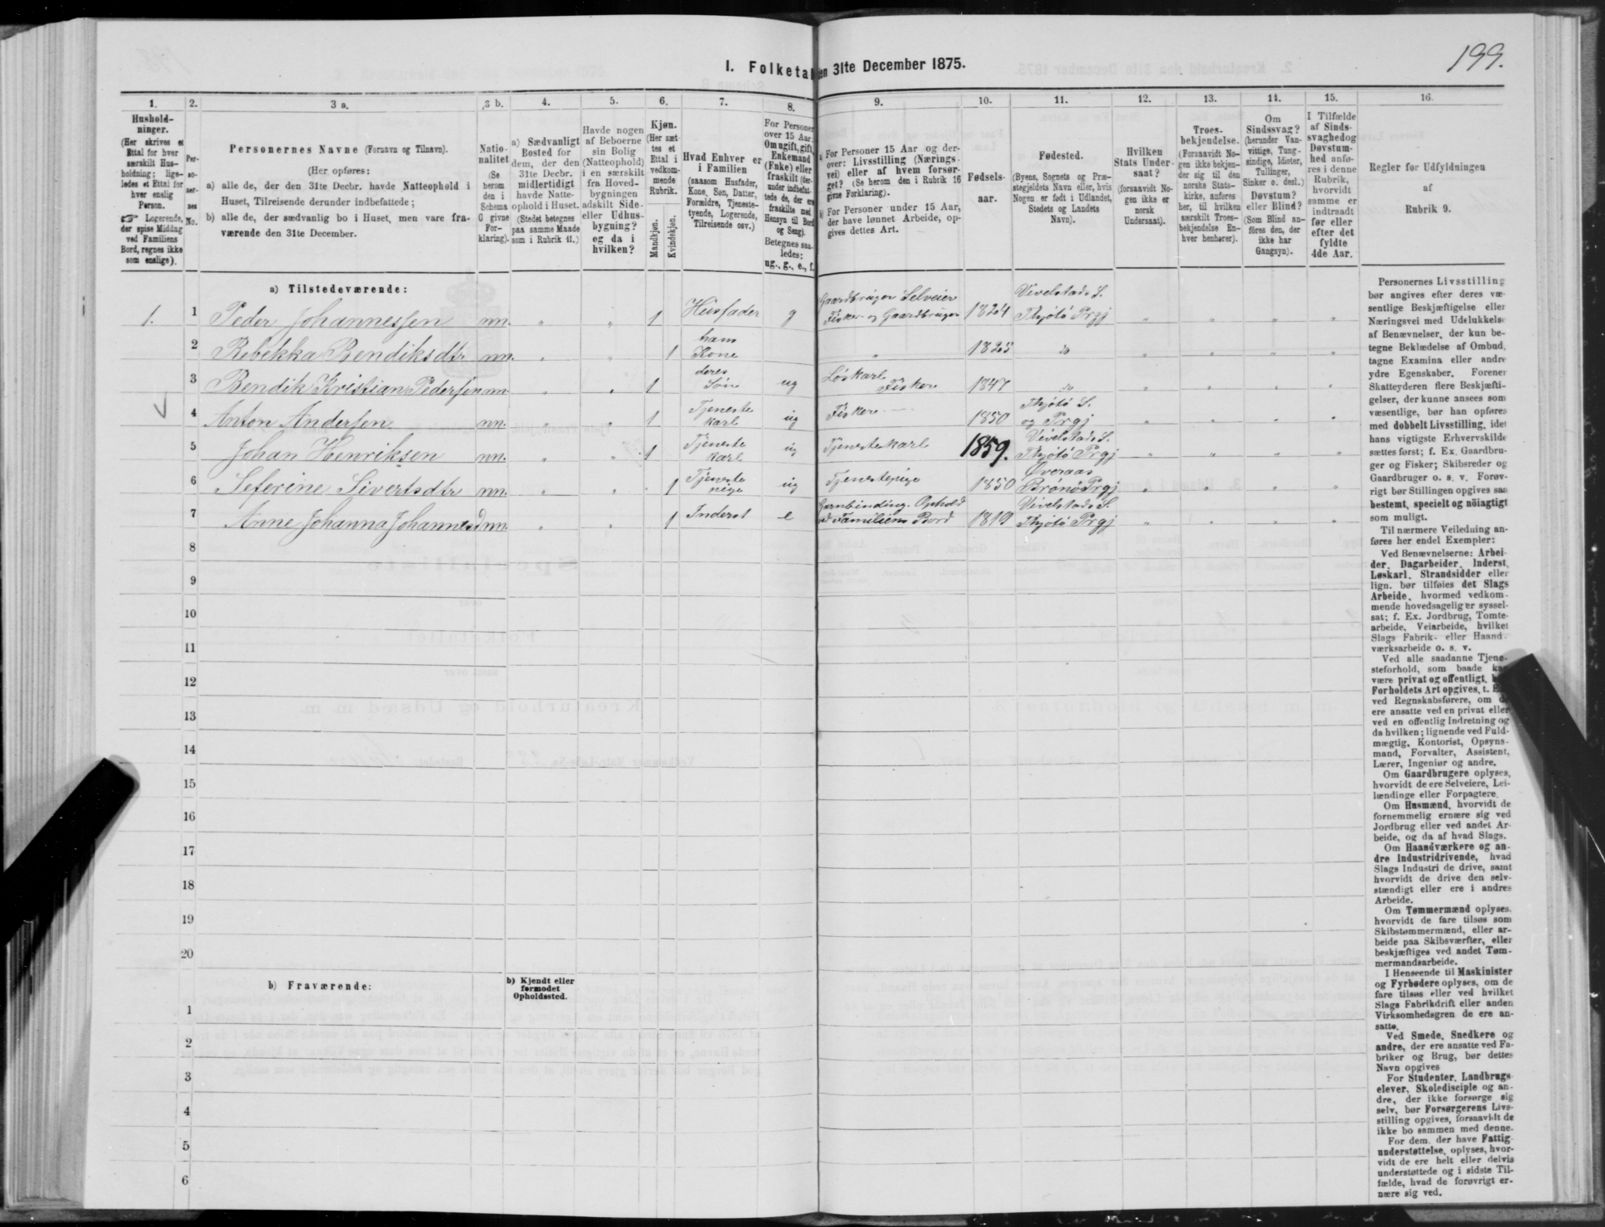 199.
I. Folketal den 31te December 1875.
1. 2. 3 a. 3 b. 4. 5. 6. 7. 8. 9. 10. 11. 12. 13. 14. 15. 16.
Husholdninger.
(Her skrives et Ettal for hver særskilt Husholdning; ligeledes et Ettal for hver enslig Person.
☞ Logerende, der spise Middag ved Familiens Bord, regnes ikke som enslige).
Personernes No.
Personernes Navne (Fornavn og Tilnavn).
(Her opføres:
a) alle de, der den 31te Decbr. havde Natteophold i Huset, Tilreisende derunder indbefattede;
b) alle de, der sædvanlig bo i Huset, men vare fraværende den 31te December.
Nationalitet (Se herom den i Schema G givne Forklaring).
a) Sædvanligt Bosted for dem, der den 31te Decbr. midlertidigt havde Natteophold i Huset. (Stedet betegnes paa samme Maade som i Rubrik 11.)
Havde nogen af Beboerne sin Bolig (Natteophold) i en særskilt fra Hovedbygningen adskilt Side- eller Udhusbygning? og da i hvilken?
Kjøn. (Her sættes et Ettal i vedkommende Rubrik.
Mandkjøn. Kvindekjøn.
Hvad Enhver er i Familien (saasom Husfader, Kone, Søn, Datter, Forældre, Tjenestetyende, Logerende, Tilreisende osv.)
For Personer over 15 Aar: Om ugift, gift, Enkemand (Enke) eller fraskilt
Betegnes saaledes: ug., g., e., f.
a) For Personer 15 Aar og derover: Livsstilling (Næringsvei) eller af hvem forsørget? (Se herom den i Rubrik 16 givne Forklaring).
b) For Personer under 15 Aar, der have lønnet Arbeide, opgives dettes Art.
Fødselsaar.
Fødested.
(Byens, Sognets og Præstegjeldets Navn eller, hvis Nogen er født i Udlandet, Stedets og Landets Navn).
Hvilken Stats Undersaat? (forsaavidt Nogen ikke er norsk Undersaat).
Troesbekjendelse. (Forsaavidt Nogen ikke bekjender sig til den norske Statskirke, anføres her, til hvilken særskilt Troesbekjendelse Enhver henhører).
Om Sindssvag? (herunder Vanvittige, Tungsindige, Idioter, Tullinger, Sinker o. desl.) Døvstum? eller Blind? (Som Blind anføres den, der ikke har Gangsyn).
I Tilfælde af Sindssvaghed og Døvstumhed anføres i denne Rubrik, hvorvidt samme er indtraadt før eller efter det fyldte 4de Aar.
Regler for Udfyldningen af Rubrik 9.
a) Tilstedeværende:
1. 1 Peder Johannessen nn. „ „ 1 Husfader g Gaardbruger Selveier Fisker og Gaardbruger 1824 Vivelstads S. Thjøtø Prgj „ „ „ „
2 Rebekka Bendiksdtr nn. „ „ 1 hans Kone „ 1825 do „ „ „ „
3 Bendik Kristian Pedersen nn „ „ 1 deres Søn ug Løskarl Fisker 1847 do „ „ „ „
4 Anton Andersen nn. „ „ 1 Tjeneste karl ug Fisker 1850 Thjøtø S. og Prgj „ „ „ „
5 Johan Henriksen nn. „ „ 1 Tjeneste karl ug Tjenestekarl 1859. Vivelstads S. Thjøtø Prgj „ „ „ „
6 Seferine Sivertsdtr nn. „ „ 1 Tjeneste pige ug Tjenestepige 1850 Brønø Prgj „ „ „ „
7 Anne Johanna Johannesd nn. „ „ 1 Inderst e Garnbinding. Ophold ved Familiens Bord Vivelstads S. Thjøtø Prgj „ „ „ „
8
9
10
11
12
13
14
15
16
17
18
19
20
b) Fraværende:
b) Kjendt eller formodet Opholdssted.
1
2
3
4
5
6
Personernes Livsstilling
bør angives efter deres væ-
sentlige Beskjæftigelse eller
Næringsvei med Udelukkelse
af Benævnelser, der kun be-
tegne Beklædelse af Ombud,
tagne Examina eller andre
ydre Egenskaber. Forener
Skatteyderen flere Beskjæfti-
gelser, der kunne ansees som
væsentlige, bør han opføres
med dobbelt Livsstilling, idet
hans vigtigste Erhvervskilde
sættes først; f. Ex. Gaardbru-
ger og Fisker; Skibsreder og
Gaardbruger o. s. v. Forøv-
rigt bør Stillingen opgives saa
bestemt, specielt og nøiagtigt
som muligt.
Til nærmere Veiledning an-
føres her endel Exempler:
Ved Benævnelserne: Arbei-
der, Dagarbeider, Inderst,
Løskarl, Strandsidder eller
lign. bør tilføies det Slags
Arbeide, hvormed vedkom-
mende hovedsagelig er syssel-
sat; f. Ex. Jordbrug, Tomte-
arbeide, Veiarbeide, hvilket
Slags Fabrik- eller Haand-
værksarbeide o. s. v.
Ved alle saadanne Tjene-
steforhold, som baade kan
være privat og offentligt, bør
Forholdets Art opgives, t. Ex.
ved Regnskabsførere, om de
ere ansatte ved en privat eller
ved en offentlig Indretning og
da hvilken; lignende ved Fuld-
mægtig, Kontorist, Opsyns-
mand, Forvalter, Assistent,
Lærer, Ingeniør og andre.
Om Gaardbrugere oplyses,
hvorvidt de ere Selveiere, Lei-
lændinge eller Forpagtere.
Om Husmænd, hvorvidt de
fornemmelig ernære sig ved
Jordbrug eller ved andet Ar-
beide, og da af hvad Slags.
Om Haandværkere og an-
dre Industridrivende, hvad
Slags Industri de drive, samt
hvorvidt de drive den selv-
stændigt eller ere i andres
Arbeide.
Om Tømmermænd oplyses,
hvorvidt de fare tilsøs som
Skibstømmermænd, eller ar-
beide paa Skibsværfter, eller
beskjæftiges ved andet Tøm-
mermandsarbeide.
I Henseende til Maskinister
og Fyrbødere oplyses, om de
fare tilsøs eller ved hvilket
Slags Fabrikdrift eller anden
Virksomhedsgren de ere an-
satte.
Ved Smede, Snedkere og
andre, der ere ansatte ved Fa-
briker og Brug, bør dettes
Navn opgives
For Studenter, Landbrugs-
elever, Skoledisciple og an-
dre, der ikke forsørge sig
selv, bør Forsørgerens Livs-
stilling opgives, forsaavidt de
ikke bo sammen med denne.
For dem, der have Fattig-
understøttelse, oplyses, hvor-
vidt de ere helt eller delvis
understøttede og i sidste Til-
fælde, hvad de forøvrigt er-
nære sig ved.